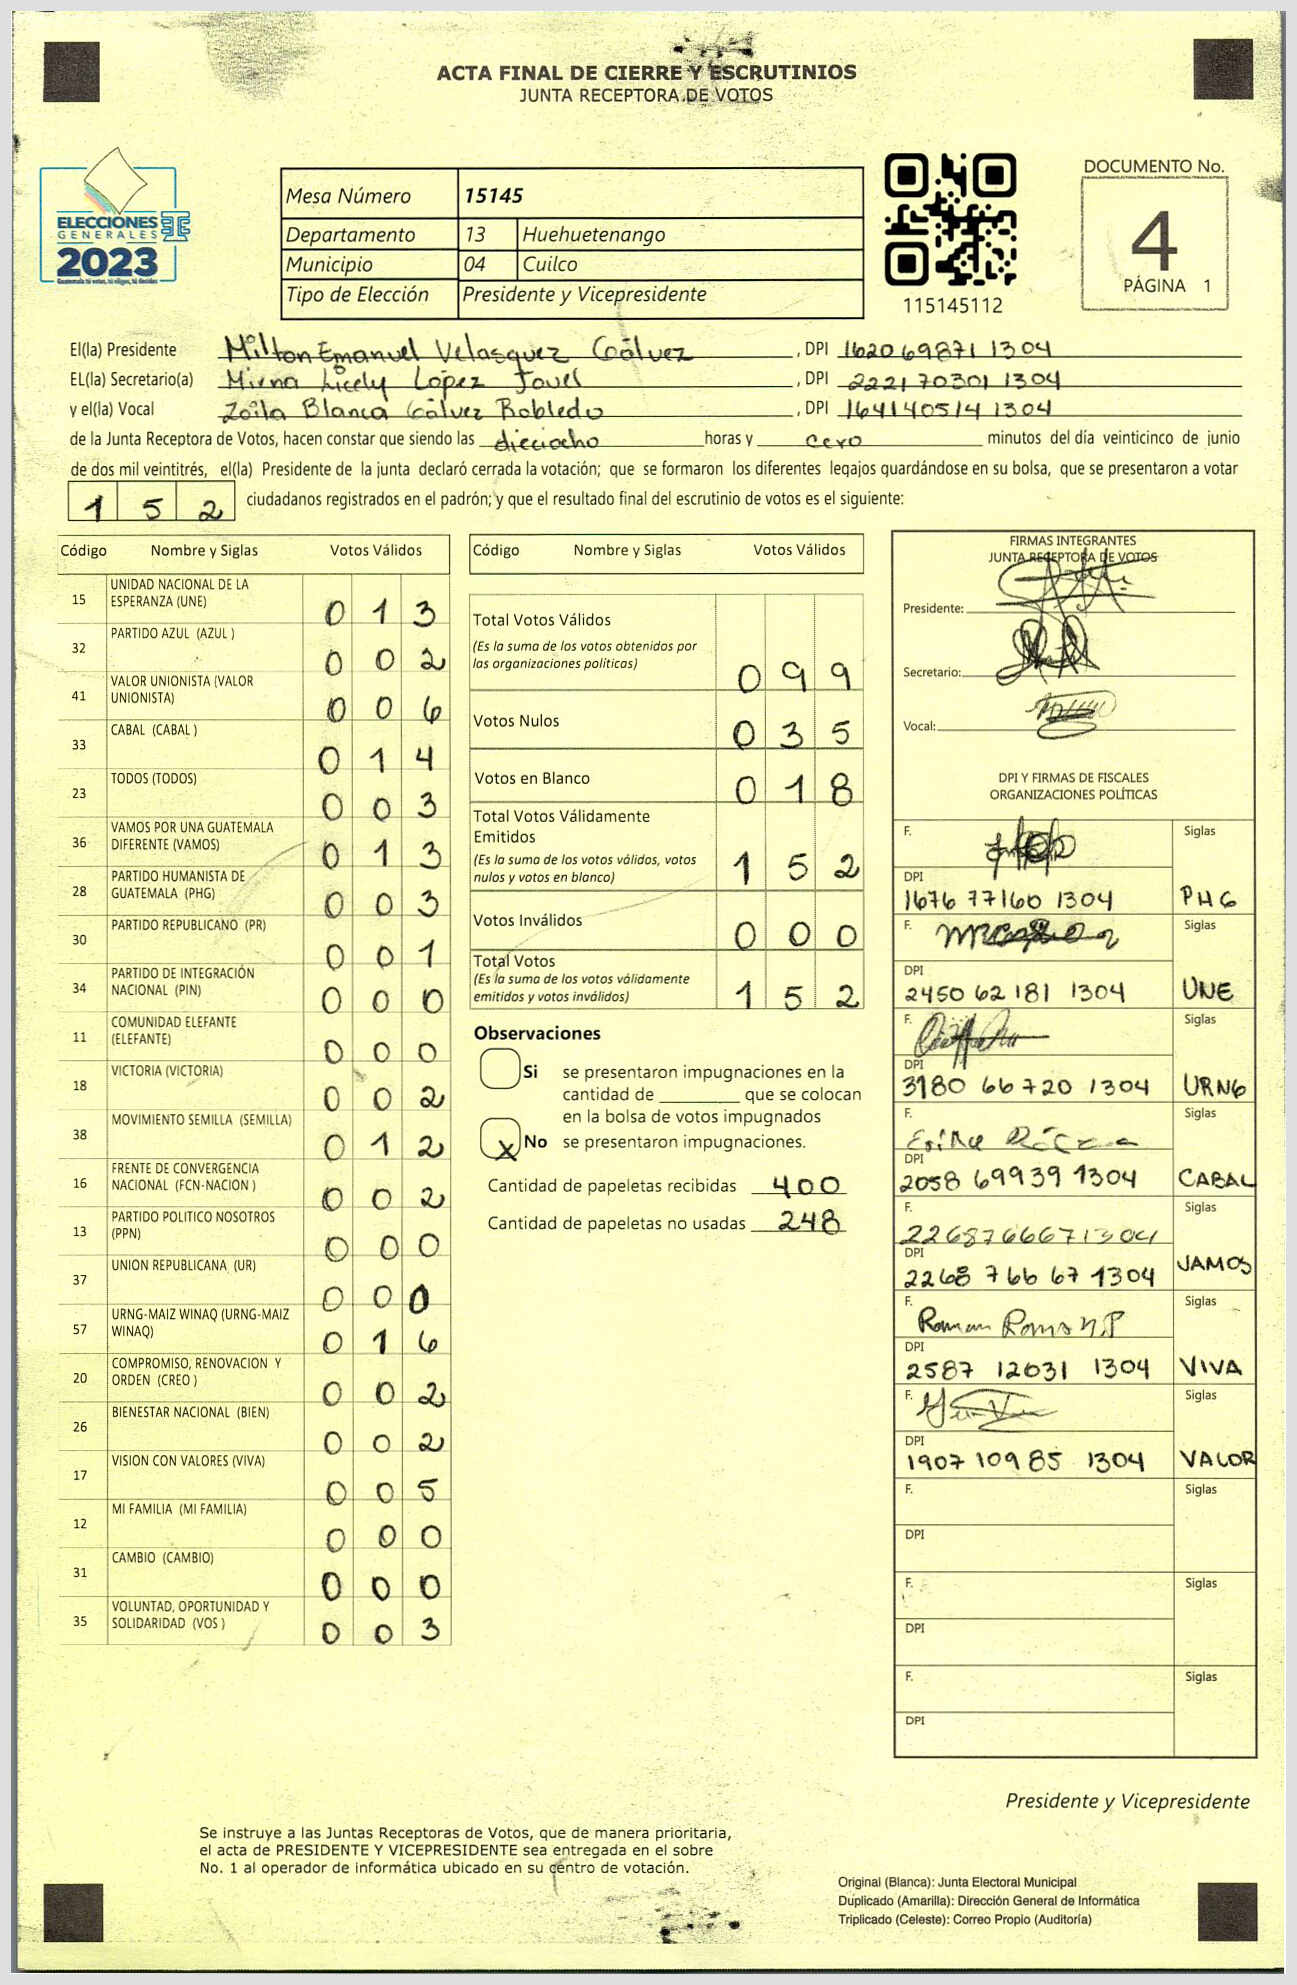 ACTA FINAL DE CIERRE Y ESCRUTINIOS
JUNTA RECEPTORA DE VOTOS
ELECCIONES
GENERALES
2023
Guatemala tú votas, tú eliges, tú decides
Mesa Número 15145
Departamento 13 Huehuetenango
Municipio 04 Cuilco
Tipo de Elección Presidente y Vicepresidente
115145112
DOCUMENTO No.
4
PÁGINA 1
El(la) Presidente Milton Emanuel Velasquez Gálvez , DPI 162069871 1304
EL(la) Secretario(a) Mirna Licely López Jovel , DPI 222170301 1304
y el(la) Vocal Zoila Blanca Gálvez Robledo , DPI 164140514 1304
de la Junta Receptora de Votos, hacen constar que siendo las dieciocho horas y cero minutos del día veinticinco de junio
de dos mil veintitrés, el(la) Presidente de la junta declaró cerrada la votación; que se formaron los diferentes legajos guardándose en su bolsa, que se presentaron a votar
152 ciudadanos registrados en el padrón; y que el resultado final del escrutinio de votos es el siguiente:
Código Nombre y Siglas Votos Válidos
15 UNIDAD NACIONAL DE LA ESPERANZA (UNE) 013
32 PARTIDO AZUL (AZUL ) 002
41 VALOR UNIONISTA (VALOR UNIONISTA) 006
33 CABAL (CABAL ) 014
23 TODOS (TODOS) 003
36 VAMOS POR UNA GUATEMALA DIFERENTE (VAMOS) 013
28 PARTIDO HUMANISTA DE GUATEMALA (PHG) 003
30 PARTIDO REPUBLICANO (PR) 001
34 PARTIDO DE INTEGRACIÓN NACIONAL (PIN) 000
11 COMUNIDAD ELEFANTE (ELEFANTE) 000
18 VICTORIA (VICTORIA) 002
38 MOVIMIENTO SEMILLA (SEMILLA) 012
16 FRENTE DE CONVERGENCIA NACIONAL (FCN-NACION ) 002
13 PARTIDO POLITICO NOSOTROS (PPN) 000
37 UNION REPUBLICANA (UR) 000
57 URNG-MAIZ WINAQ (URNG-MAIZ WINAQ) 016
20 COMPROMISO, RENOVACION Y ORDEN (CREO ) 002
26 BIENESTAR NACIONAL (BIEN) 002
17 VISION CON VALORES (VIVA) 005
12 MI FAMILIA (MI FAMILIA) 000
31 CAMBIO (CAMBIO) 000
35 VOLUNTAD, OPORTUNIDAD Y SOLIDARIDAD (VOS ) 003
Código Nombre y Siglas Votos Válidos
Total Votos Válidos
(Es la suma de los votos obtenidos por
las organizaciones políticas) 099
Votos Nulos 035
Votos en Blanco 018
Total Votos Válidamente
Emitidos
(Es la suma de los votos válidos, votos
nulos y votos en blanco) 152
Votos Inválidos 000
Total Votos
(Es la suma de los votos válidamente
emitidos y votos inválidos) 152
Observaciones
Si se presentaron impugnaciones en la
cantidad de ________ que se colocan
en la bolsa de votos impugnados
X No se presentaron impugnaciones.
Cantidad de papeletas recibidas 400
Cantidad de papeletas no usadas 248
FIRMAS INTEGRANTES
JUNTA RECEPTORA DE VOTOS
Presidente:
Secretario:
Vocal:
DPI Y FIRMAS DE FISCALES
ORGANIZACIONES POLÍTICAS
F. Siglas
DPI
1676 77160 1304 PHG
F. Siglas
DPI
2450 62 181 1304 UNE
F. Siglas
DPI
3180 66 720 1304 URNG
F. Siglas
DPI
2058 69939 1304 CABAL
F. 2268766671304 Siglas
DPI
2268 766 67 1304 VAMOS
F. Roman Siglas
DPI
2587 12031 1304 VIVA
F. Siglas
DPI
1907 109 85 1304 VALOR
F. Siglas
DPI
F. Siglas
DPI
F. Siglas
DPI
Presidente y Vicepresidente
Se instruye a las Juntas Receptoras de Votos, que de manera prioritaria,
el acta de PRESIDENTE Y VICEPRESIDENTE sea entregada en el sobre
No. 1 al operador de informática ubicado en su centro de votación.
Original (Blanca): Junta Electoral Municipal
Duplicado (Amarilla): Dirección General de Informática
Triplicado (Celeste): Correo Propio (Auditoría)